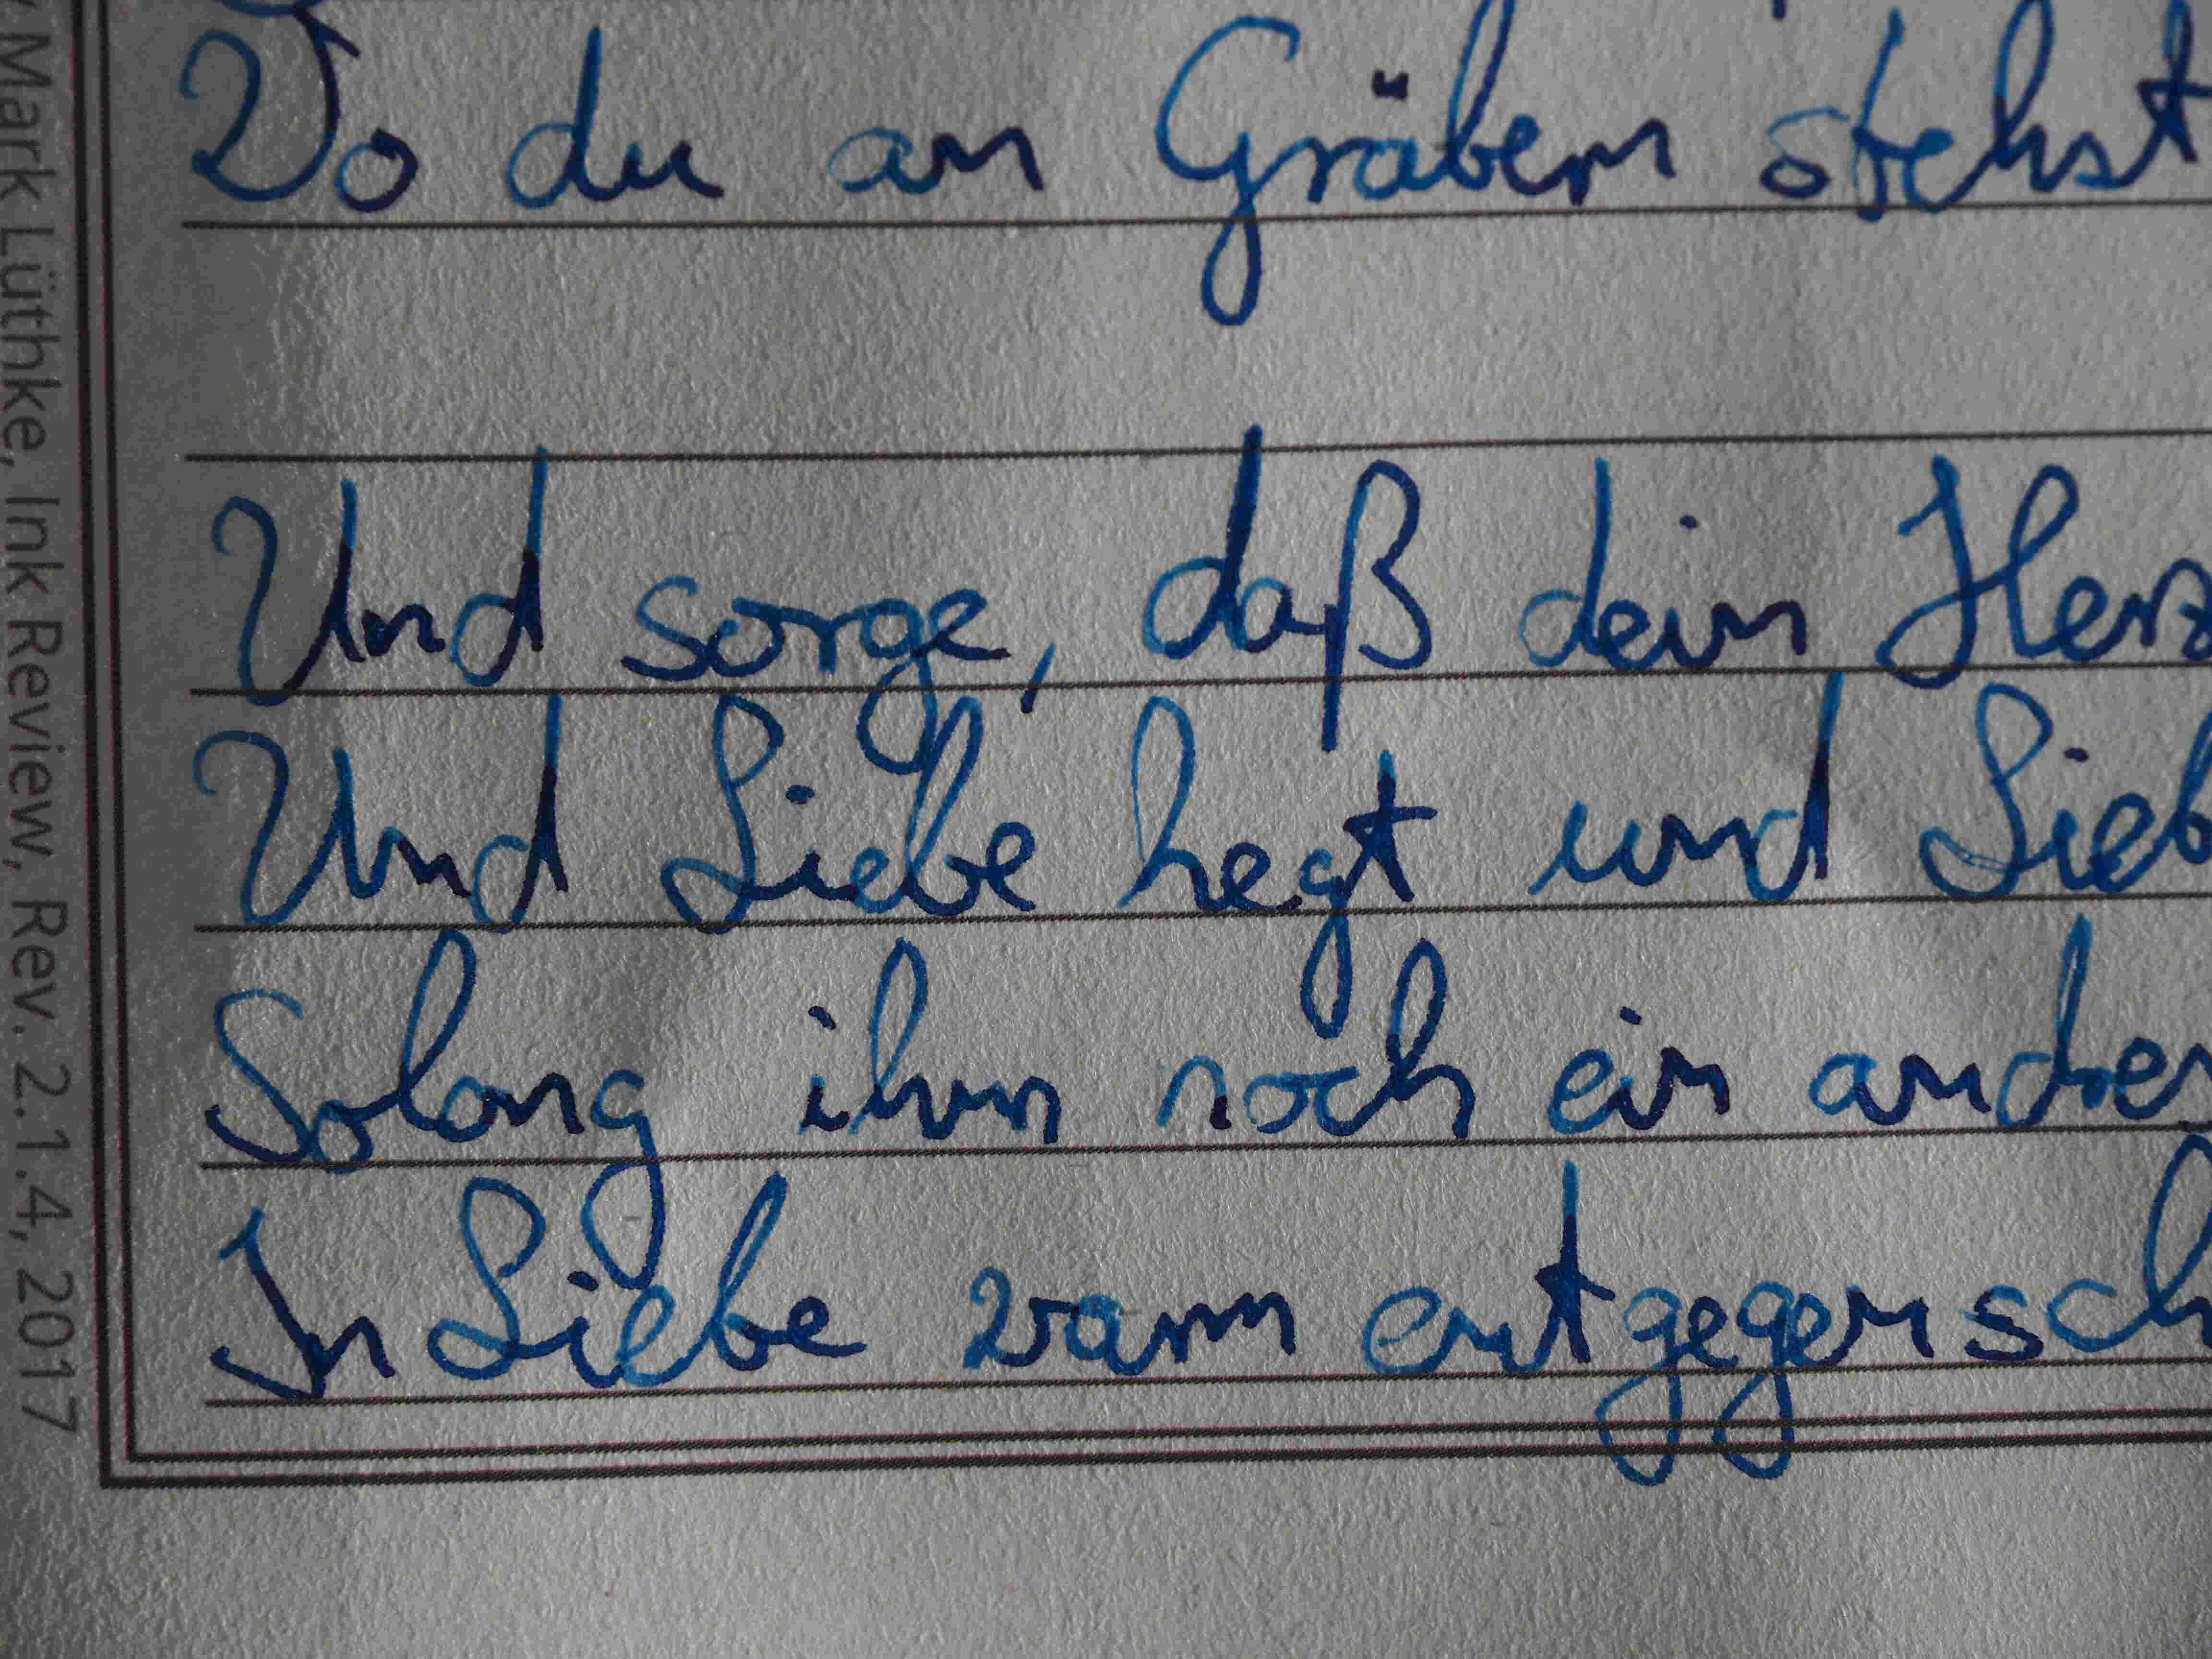 Wo du an Gräbern stehst
Und sorge, daß dein Herz
Und Liebe hegt und Lieb
Solang ihm noch ein ander
In Liebe warm entgegensch
Mark Lüthke, Ink Review, Rev. 2.1.4, 2017